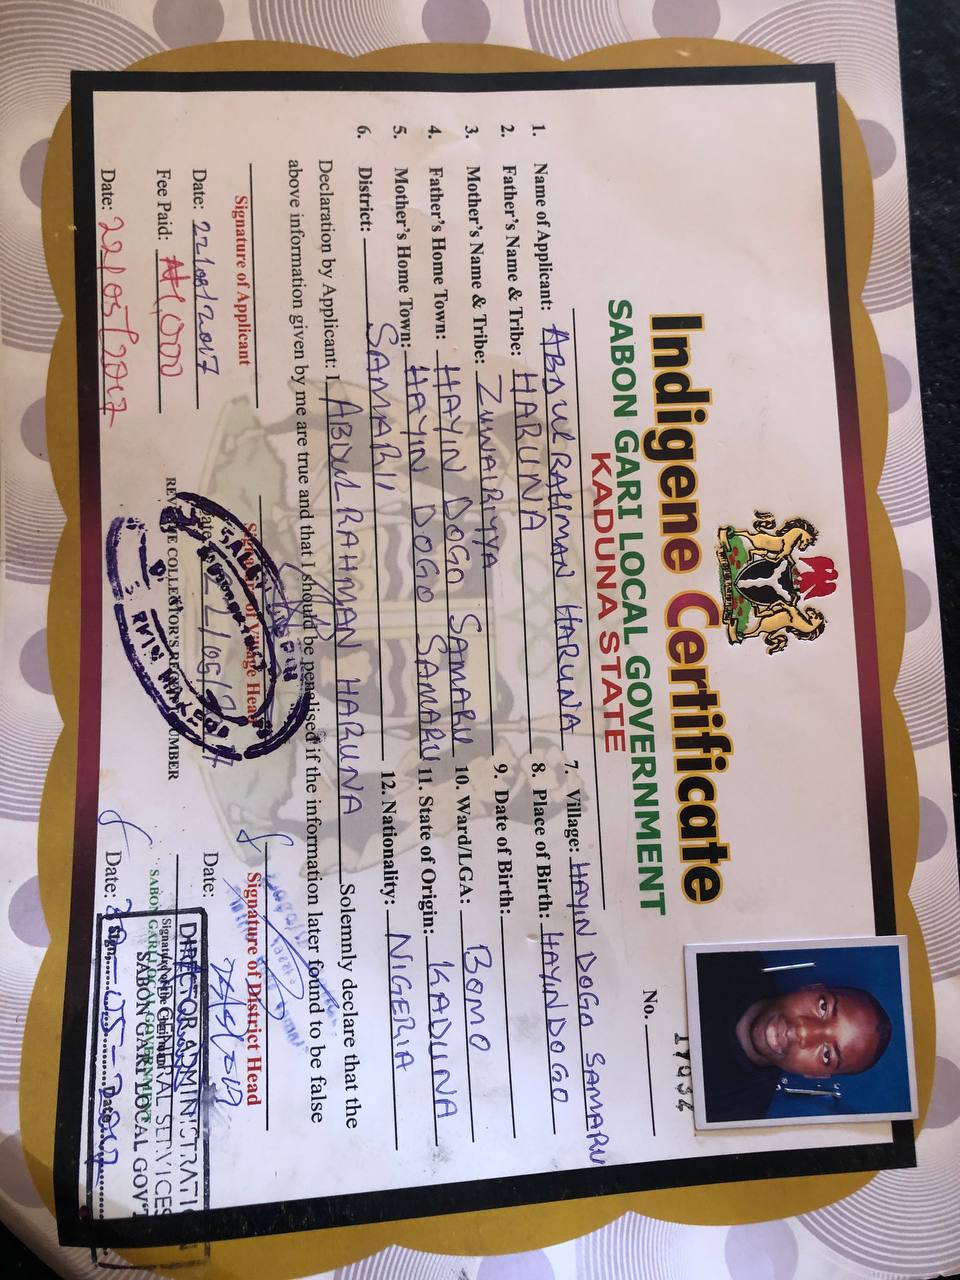 Indigene Certificate
SABON GARI LOCAL GOVERNMENT
KADUNA STATE
No.
17034
1. Name of Applicant: ABDULRAHMAN HARUNA
2. Father's Name & Tribe: HARUNA
3. Mother's Name & Tribe: ZUWAIRIYYA
4. Father's Home Town: HAYIN DOGO SAMARU
5. Mother's Home Town: HAYIN DOGO SAMARU
6. District: SAMARU
7. Village: HAYIN DOGO SAMARU
8. Place of Birth: HAYIN DOGO
9. Date of Birth:
10. Ward/LGA: BOMO
11. State of Origin: KADUNA
12. Nationality: NIGERIA
Declaration by Applicant: I, ABDULRAHMAN HARUNA Solemnly declare that the
above information given by me are true and that I should be penalised if the information later found to be false
Signature of Applicant
Date: 22/05/2017
Fee Paid: ₦1,000
Date: 22/05/2017
Signature of Village Head
REVENUE COLLECTOR'S NUMBER
Signature of District Head
Date:
DIRECTOR ADMINISTRATI
GENERAL SERVICES
SABON GARI LOCAL GOVT
Sign Date
Date: